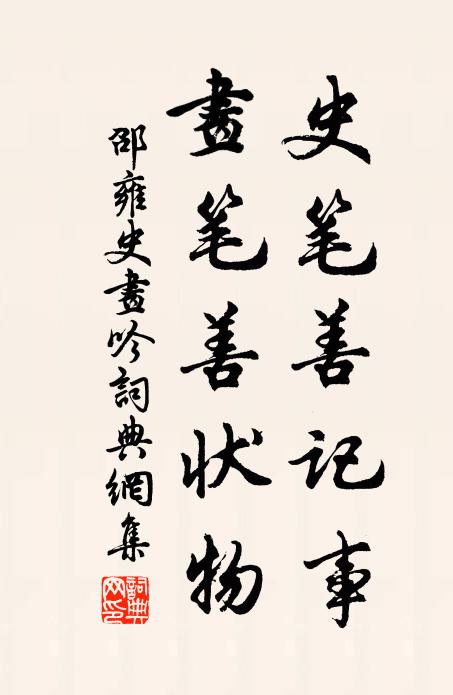 史笔善记事
畫笔善状物
邵雍史畫吟詞典網集
詞典網印